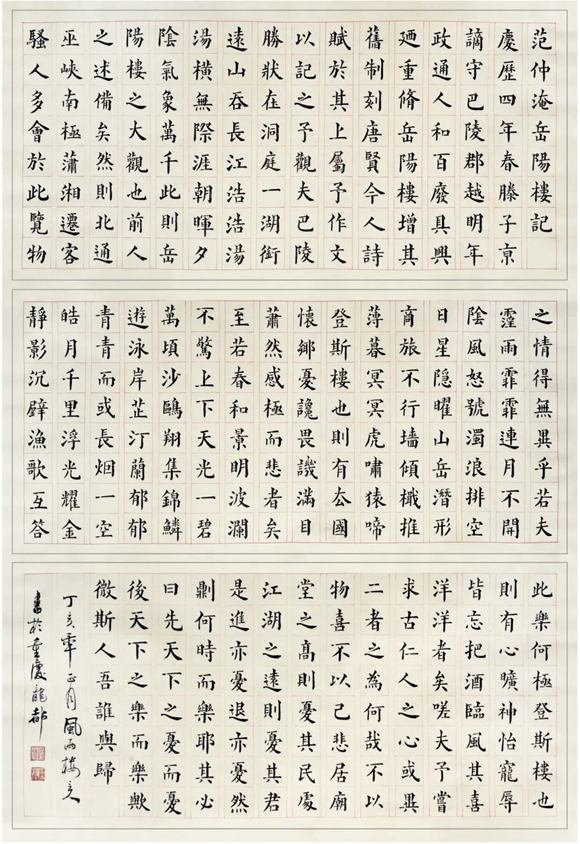 范仲淹岳陽樓記
慶歷四年春滕子京
謫守巴陵郡越明年
政通人和百廢具興
廼重脩岳陽樓增其
舊制刻唐賢今人詩
賦於其上屬予作文
以記之予觀夫巴陵
勝狀在洞庭一湖銜
遠山吞長江浩浩湯
湯橫無際涯朝暉夕
陰氣象萬千此則岳
陽樓之大觀也前人
之述備矣然則北通
巫峽南極瀟湘遷客
騷人多會於此覽物
之情得無異乎若夫
霪雨霏霏連月不開
陰風怒號濁浪排空
日星隱曜山岳潛形
商旅不行墻傾檝摧
薄暮冥冥虎嘯猿啼
登斯樓也則有去國
懷鄉憂讒畏譏滿目
蕭然感極而悲者矣
至若春和景明波瀾
不驚上下天光一碧
萬頃沙鷗翔集錦鱗
遊泳岸芷汀蘭郁郁
青青而或長烟一空
皓月千里浮光耀金
靜影沉璧漁歌互答
此樂何極登斯樓也
則有心曠神怡寵辱
皆忘把酒臨風其喜
洋洋者矣嗟夫予嘗
求古仁人之心或異
二者之為何哉不以
物喜不以己悲居廟
堂之高則憂其民處
江湖之遠則憂其君
是進亦憂退亦憂然
則何時而樂耶其必
曰先天下之憂而憂
後天下之樂而樂歟
微斯人吾誰與歸
丁亥年正月風雨樓主
書於重慶龍都